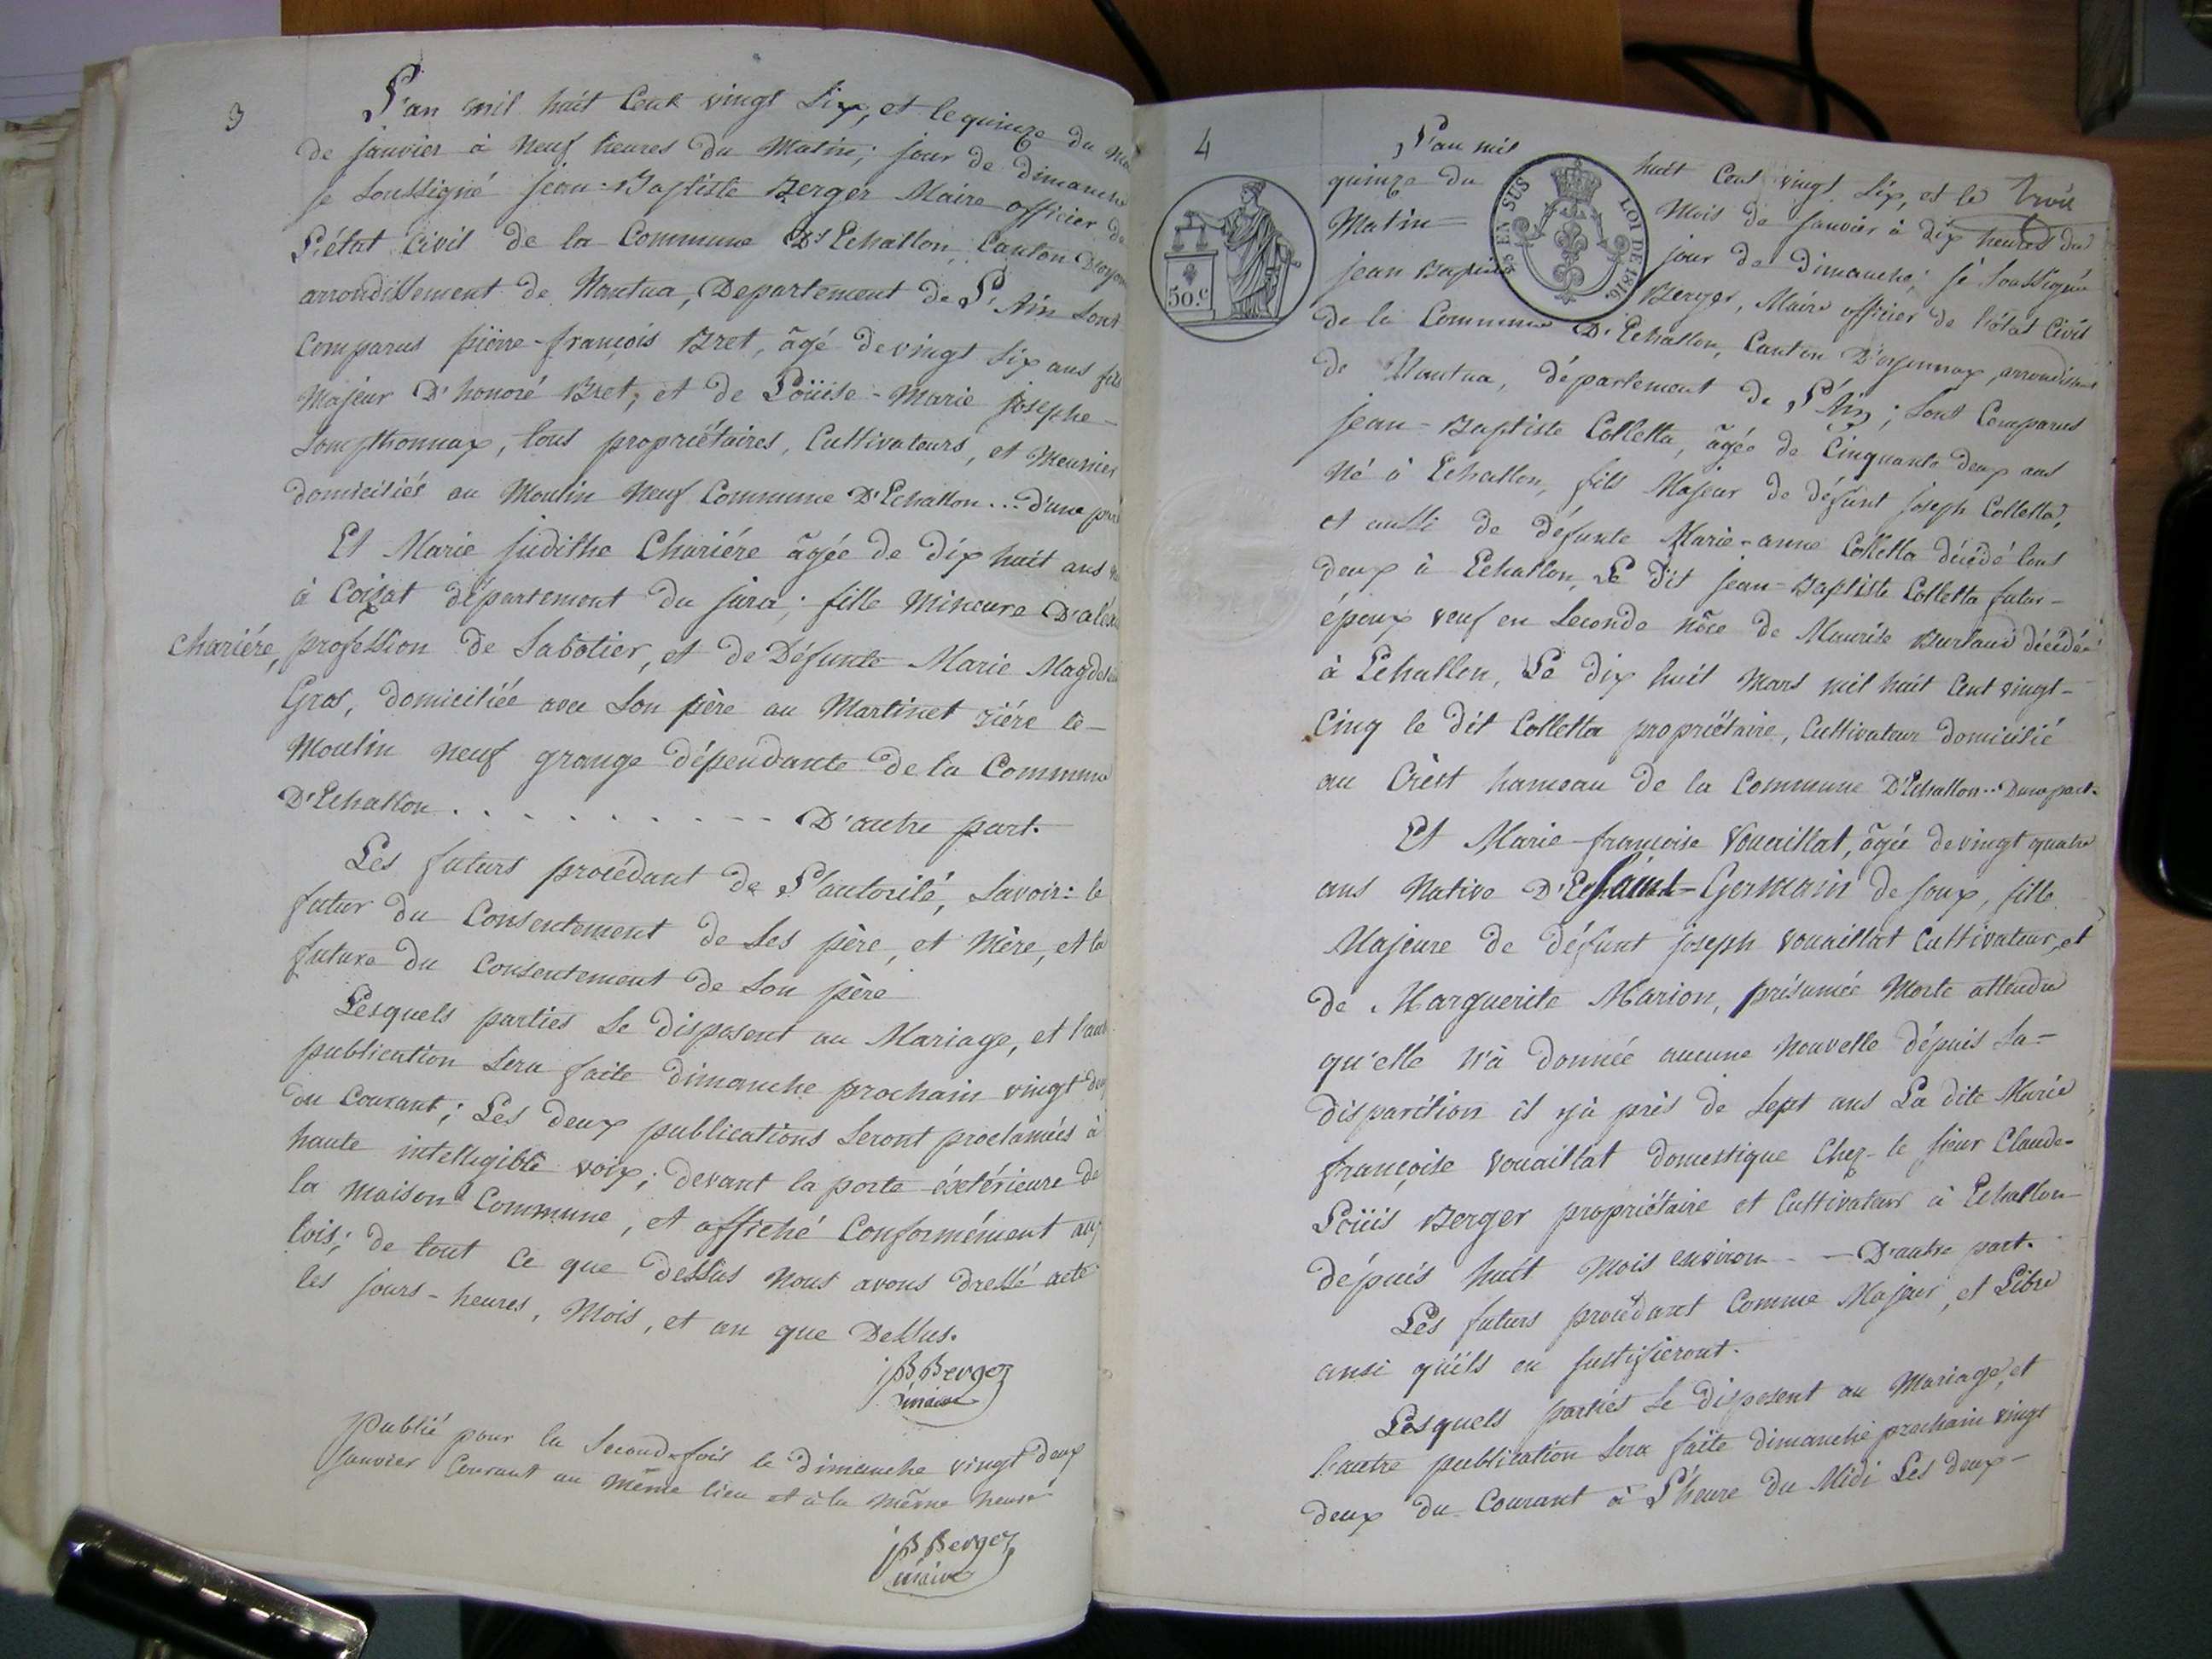 3
L'an mil huit Cent vingt Six, et le quinze du
de janvier à neuf heures du Matin; jour de dimanche
je Soussigné jean-Baptiste Berger Maire officier de
L'état Civil de la Commune D'Echallon, Canton
arrondissement de Nantua, Departement de L'Ain Sont
Comparus pierre-françois Bret, âgé de vingt Six ans fils
Majeur D'honoré Bret, et de Loüise-Marie josephe-
Sonthonnax, tous propriétaires, Cultivateurs, et Meunier
domiciliés au Moulin Neuf Commune D'Echallon... d'une part
Et Marie judithe Chariére âgée de dix huit ans
à Coizat département du jura; fille Mineure
chariére, profession de Sabotier, et de Défunte Marie
Gros, domiciliée avec Son père au Martinet riére le-
Moulin neuf grange dépendante de la Commune
D'Echallon . . . . . . . . . . --- D'autre part.
Les futurs procédant de L'autorité, Savoir: le
futur du Consentement de Ses père, et Mère, et la
future du Consentement de Son père
Lesquels parties Se disposent au Mariage, et
publication Sera faite dimanche prochain vingt
du Courant; Les deux publications Seront proclamées à
haute intelligible voix; devant la porte éxtérieure de
la maison Commune, et affiché Conformément aux
lois; de tout Ce que dessus Nous avons dressé acte
les jours-heures, Mois, et an que Dessus.
JB Berger
maire
Publié pour la Second-fois le dimanche vingt deux
janvier Courant au Même lieu et à la Même heure
JB Berger
maire
4
L'an mil huit Cent vingt Six, et le
quinze du Mois de janvier à dix heures du
Matin= jour de dimanche; je Soussigné
jean Baptiste Berger, Maire officier de l'état Civil
50.C
EN SUS LOI DE 1816.
de la Commune D'Echallon, Canton D'oyonnax, arrondissement
de Nantua, département de L'Ain; Sont Comparus
jean-Baptiste Colletta, âgée de Cinquante deux ans
Né à Echallon, fils Majeur de défunt joseph Colletta,
et aussi de défunte Marie-anne Colletta décédé tous
deux à Echallon, Le dit jean-Baptiste Colletta futur-
époux veuf en Seconde nôce de Maurise Burlaud décédée
à Echallon, Le dix huit Mars mil huit Cent vingt-
Cinq le dit Colletta propriétaire, Cultivateur domicilié
au Crèst hameau de la Commune D'Echallon.. D'une part.
Et Marie-françoise Vouaillat, âgée de vingt quatre
ans Native Saint-Germain de joux, fille
Majeure de défunt joseph Vouaillat Cultivateur, et
de Marguerite Marion, présumée Morte attendu
qu'elle n'à donnée aucune Nouvelle dépuis Sa-
disparition il y à près de Sept ans La dite Marie
françoise Vouaillat domestique Chez-le sieur Claude-
Loüis Berger propriétaire et Cultivateur à Echallon-
dépuis huit Mois environ - - D'autre part.
Les futurs procédant Comme Majeur, et Libre
ansi qu'ils en justifieront.
Lesquels partiés Se disposent au Mariage, et
l'autre publication Sera faite dimanche prochain vingt
deux du Courant à L'heure du Midi Les deux-